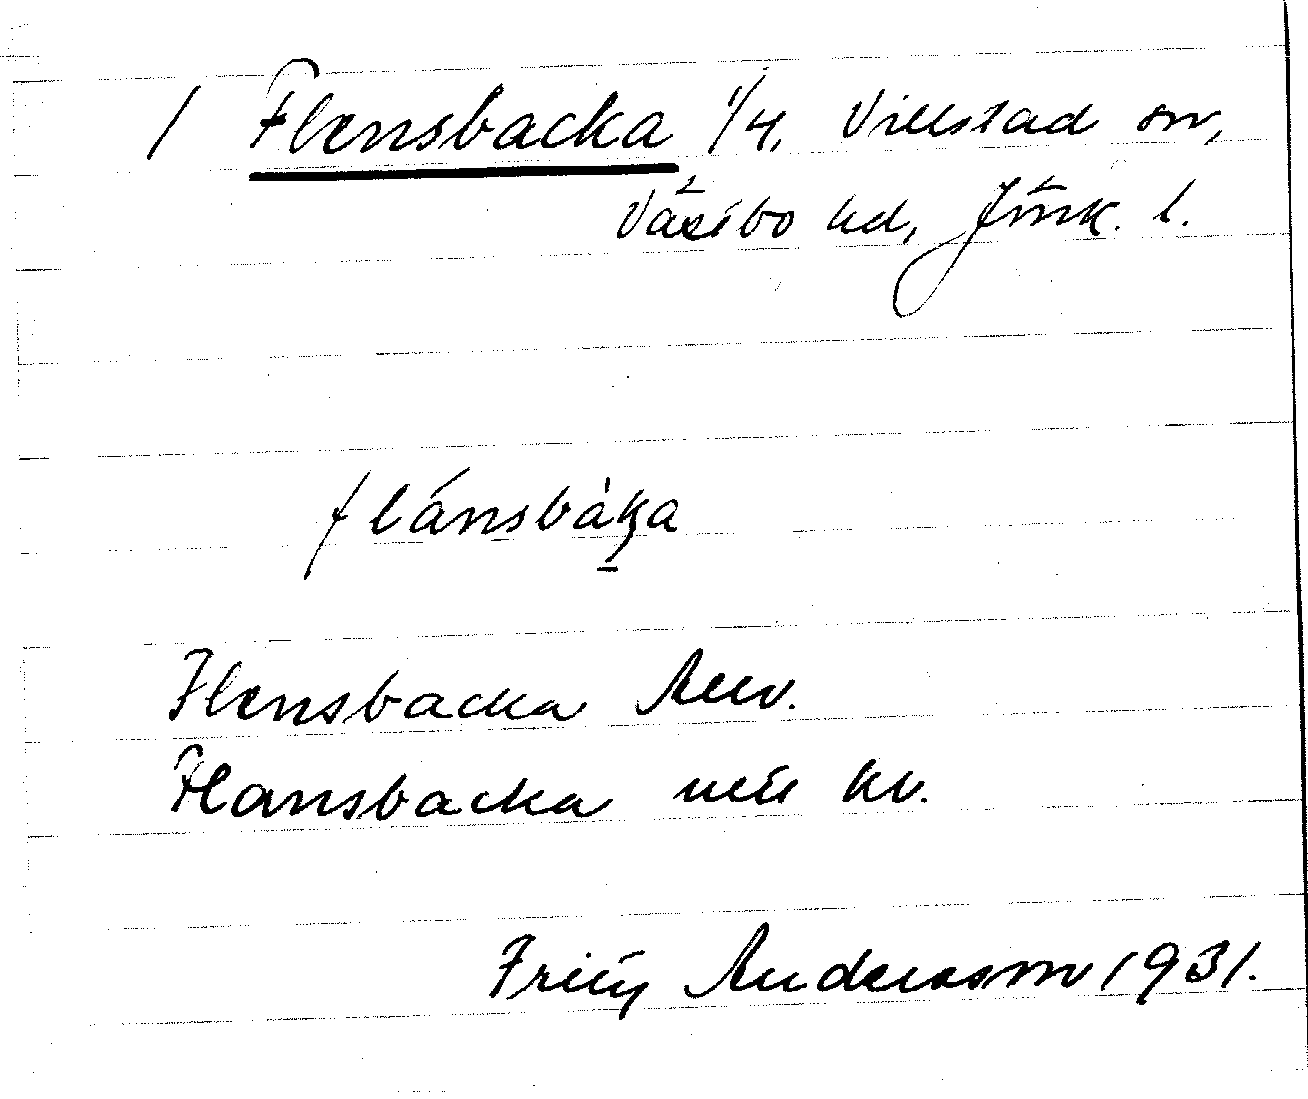 / Flensbacka 1/4, Villstad sn,
Västbo hd, Jönk. l.
flánsbàka
Flensbacka
Flansbacka kv.
Fritz Andersson 1931.